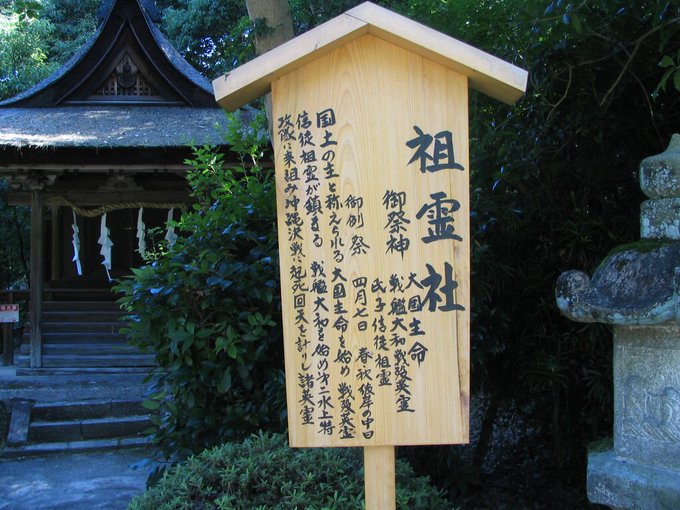 祖霊社
御祭神
大国生命
戦艦大和戦歿英霊
氏子信徒祖霊
御例祭
四月七日
春秋彼岸の中日
国土の主と称えられる大国生命を始め戦歿英霊
信徒祖霊が鎮まる
戦艦大和を始め第二水上特
攻隊に来組み沖縄沢戦に起死回天を計りし諸英霊